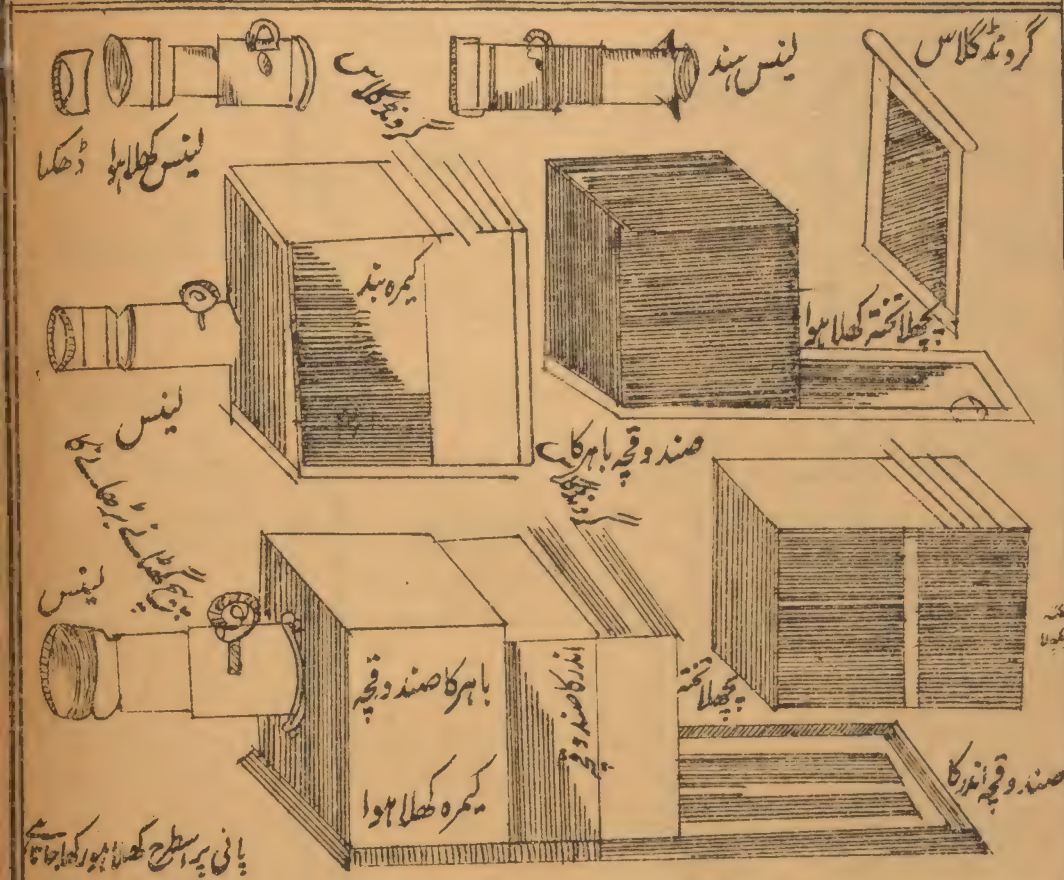 گرونڈ گلاس
لینس بند
گرونڈ گلاس
لینس کھلا ہوا
ڈھکنا
کیمرہ بند
پچھلا تختہ کھلا ہوا
لینس
صندوقچہ باہر کا
گرونڈ گلاس
پیچ گھٹانے بڑھانے کا
لینس
باہر کا صندوقچہ
اندر کا صندوقچہ
پچھلا تختہ
کیمرہ کھلا ہوا
صندوقچہ اندر کا
پانی پر اسطرح کھلا ہوا رکھا جاتا ہے